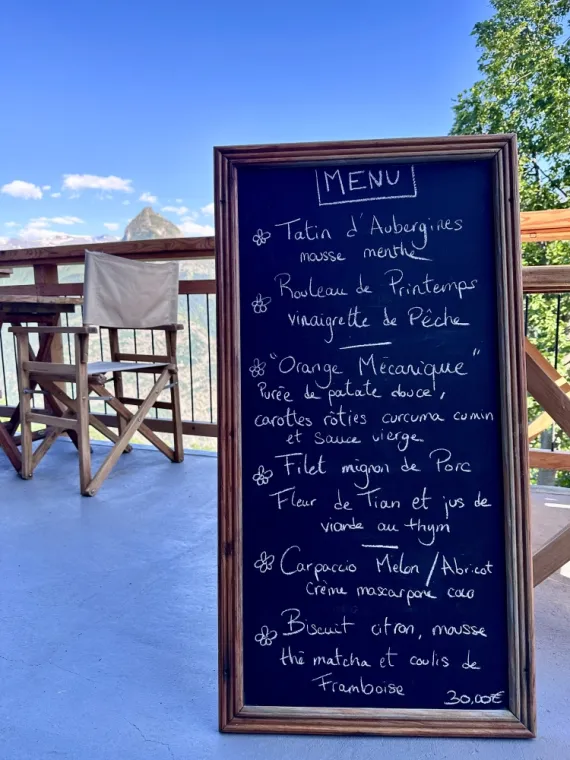 MENU
Tatin d'Aubergines
mousse menthe
Rouleau de Printemps
vinaigrette de Pêche
"Orange Mécanique"
Purée de patate douce,
carottes rôties curcuma cumin
et sauce vierge
Filet mignon de Porc
Fleur de Tian et jus de
viande au thym
Carpaccio Melon/Abricot
Crème mascarpone coco
Biscuit citron, mousse
thé matcha et coulis de
Framboise
30,00€